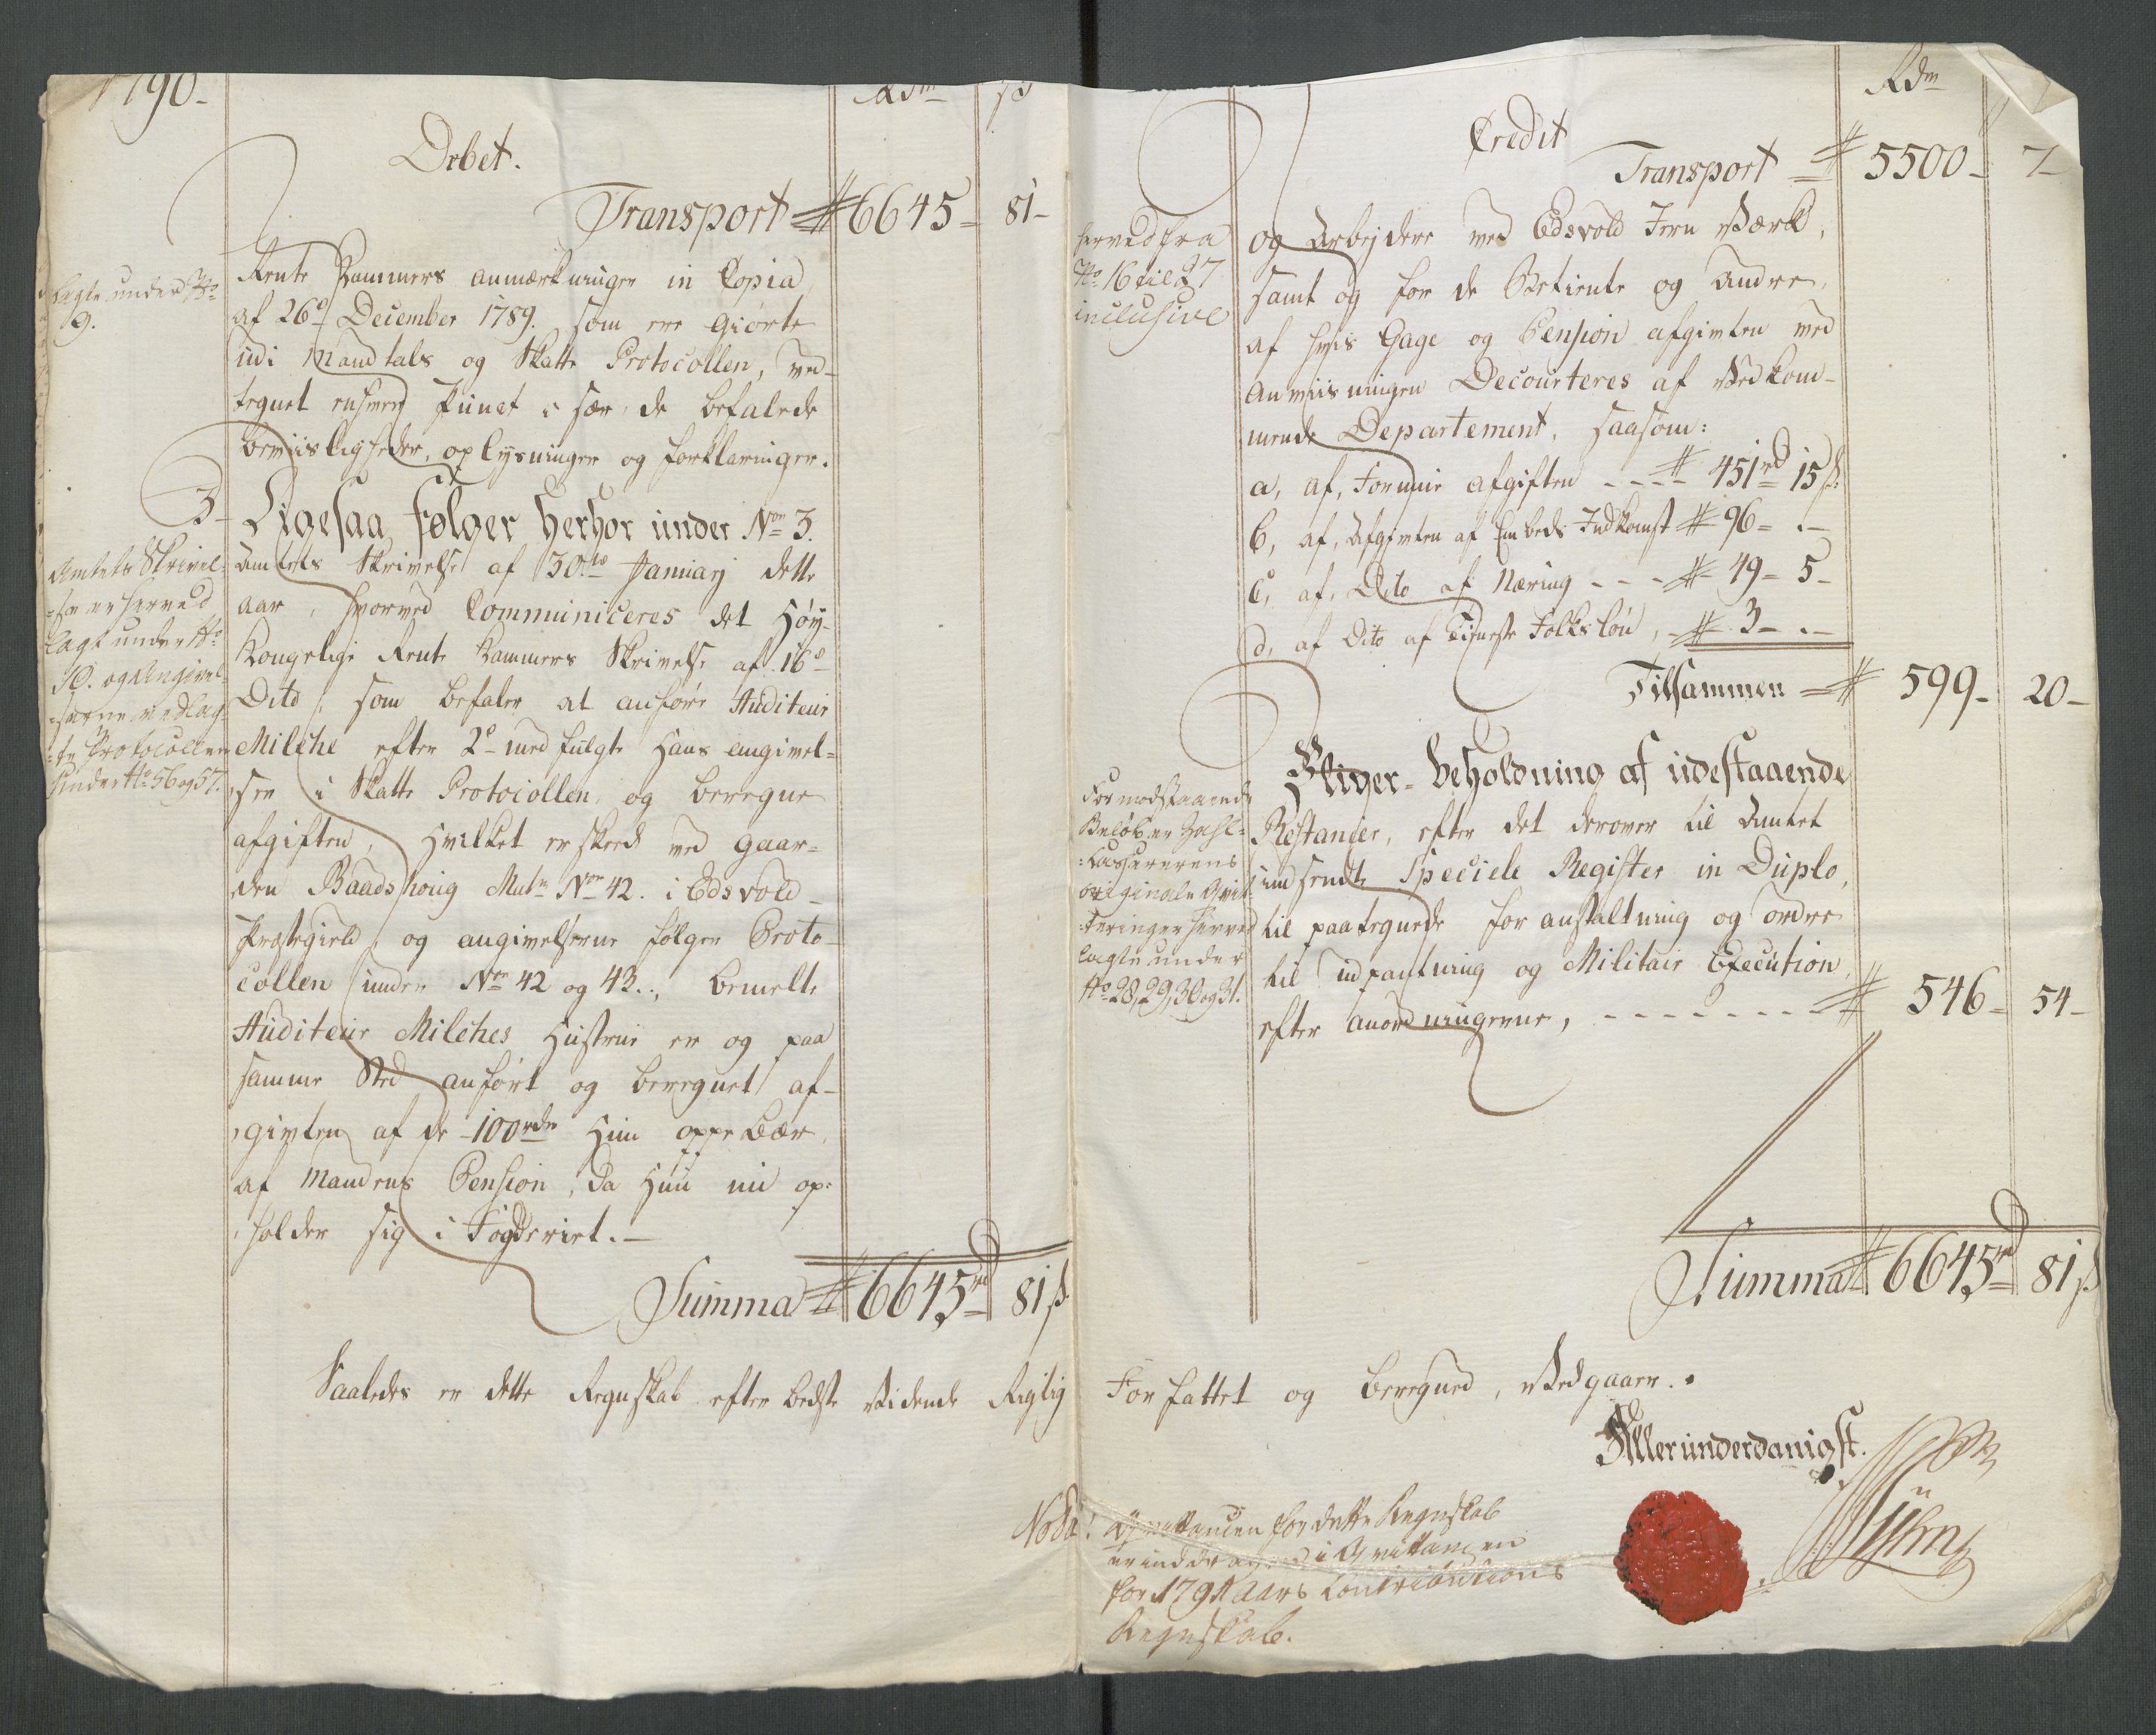 1790-
Rdm ß
Debet.
Transport # 6645- 81-
Lagte under No
9.
Rente Kammers anmærkninger in Copia
af 26d December 1789. som ere giorte
udi Mandtals og Skatte Protocollen, ved-
tegnet enhver Punct i sær, de befalede
beviisligheder, oplysninger og forklaringer.
3-
Ligesaa følger herhos under Non 3.
Amtets Skrivel-
-se er herved
lagt under No
10. og Angivel-
-serne vedlag-
-te Protocollen
under No 56 og 57.
Amtets Skrivelse af 30te Januarj dette
aar, hvorved Communiceres det Høy-
Kongelige Rente Kammers Skrivelse af 16d
Dito, som befaler at anføre Auditeur
Milche efter 2de medfulgte Hans angivel-
ser i Skatte Protocollen og beregne
afgiften, hvilket er skeed ved gaar-
den Baadshoug Matr Non 42. i Edsvold
Præstegield, og angivelserne følger Proto-
collen under Non 42 og 43., bemelte
Auditeur Milches Hustrue er og paa
samme Sted anført og beregnet af-
givten af de 100rdr Hun oppebær,
af Mandens Pension, da Hun nu op-
holder sig i Fogderiet.
Summa # 6645rd 81ß
Rdm
Credit
Transport # 5500- 7-
herved fra
No 16 til 27
inclusive
og Arbejdere ved Edsvold Jern Værk,
samt og for de Betiente og Andre,
af hvis Gage og Pension afgivten ved
Anviisningen Decourteres af Vedkom-
mende Departement, saasom:
a, af, Formue afgiften - - - # 451rd 15ß
b, af, Afgivten af Embeds Indkomst # 96- . -
c, af, Dito af Næring - - - # 49- 5-
d, af Dito af Tieneste Folks løn, - # 3- . -
Tilsammen # 599- 20-
Bliver- beholdning af udestaaende
For modstaaende
Beløb er Zahl-
-Casserernes
originale Qvit-
-teringer herved
lagte under
No 28, 29, 30 og 31.
Restancer, efter det derover til Amtet
indsendte Speciele Register in Duplo,
til paategnede foranstaltning og ordre
til udpantning og Militair Execution,
efter anordningerne, - - - - - - - # 546- 54-
Summa # 6645rd 81ß
Saaledes er dette Regnskab efter bedste Vidende Rigtig Forfattet og beregned, Vedgaaer.
Allerunderdanigst.
Nota: Qvittancen for dette Regnskab
er inddragen i Qvittancen
for 1791 Aars Contributions
Regnskab.